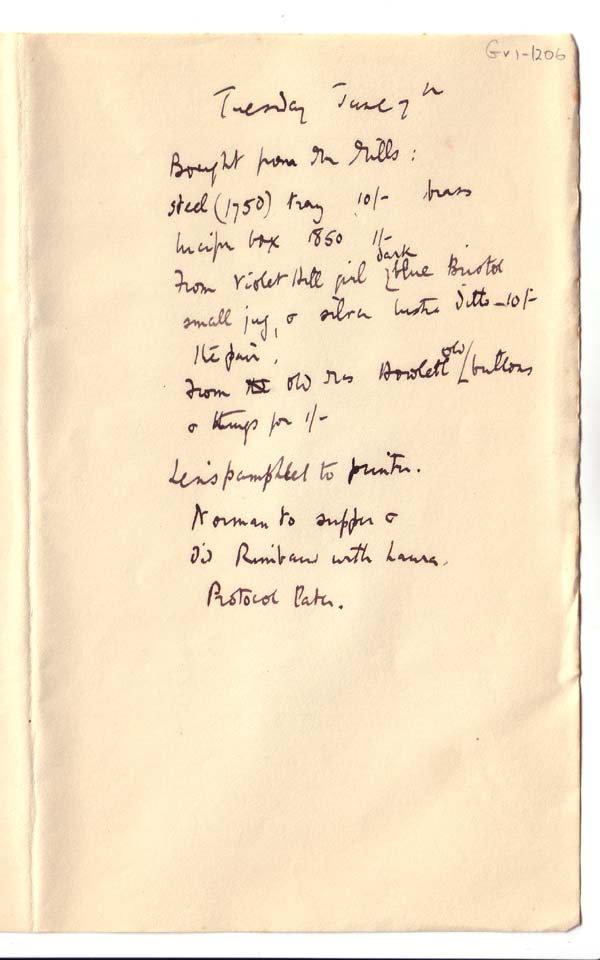 Gv1-1206
Tuesday June 7th
Bought from Mr Mills:
steel (1750) tray 10/- brass
lucifer box 1850 1/-
From Violet Hill girl dark blue Bristol
small jug, & silver lustre ditto - 10/-
the pair.
From old Mrs Howlett old buttons
& things for 1/-
Len's pamphlet to printer.
Norman to supper &
did Rimbaud with Laura.
Protocol later.